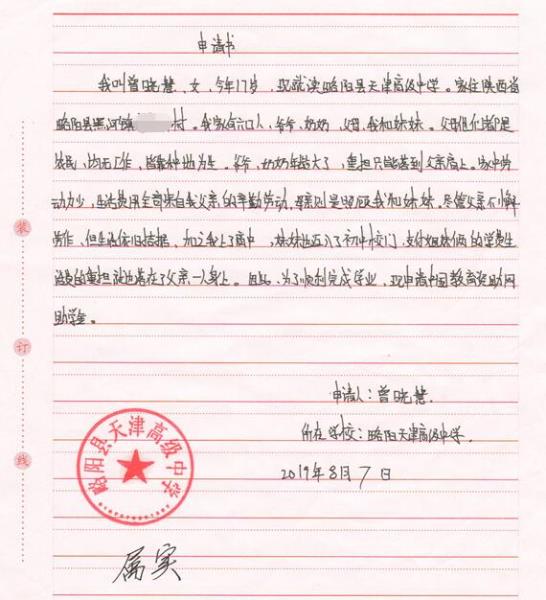 申请书
我叫曾晓慧，女，今年17岁，现就读略阳县天津高级中学。家住陕西省
略阳县黑河镇 村。我家有六口人，爷爷、奶奶，父母，我和妹妹。父母他们都是
农民，均无工作，皆靠种地为生。爷爷、奶奶年龄大了，重担只能落到父亲肩上。家中劳
动力少，生活费用全部来自我父亲的辛勤劳动，母亲则是照顾我和妹妹。尽管父亲不少辛
劳作，但生活依旧拮据，加之我上了高中，妹妹也迈入了初中校门，支付姐妹俩的学费生
活费的重担就也落在了父亲一人身上。因此，为了顺利完成学业，现申请中国教育资助网
助学金。
申请人：曾晓慧
所在学校：略阳天津高级中学
2019年8月7日
略阳县天津高级中学
属实
装
订
线